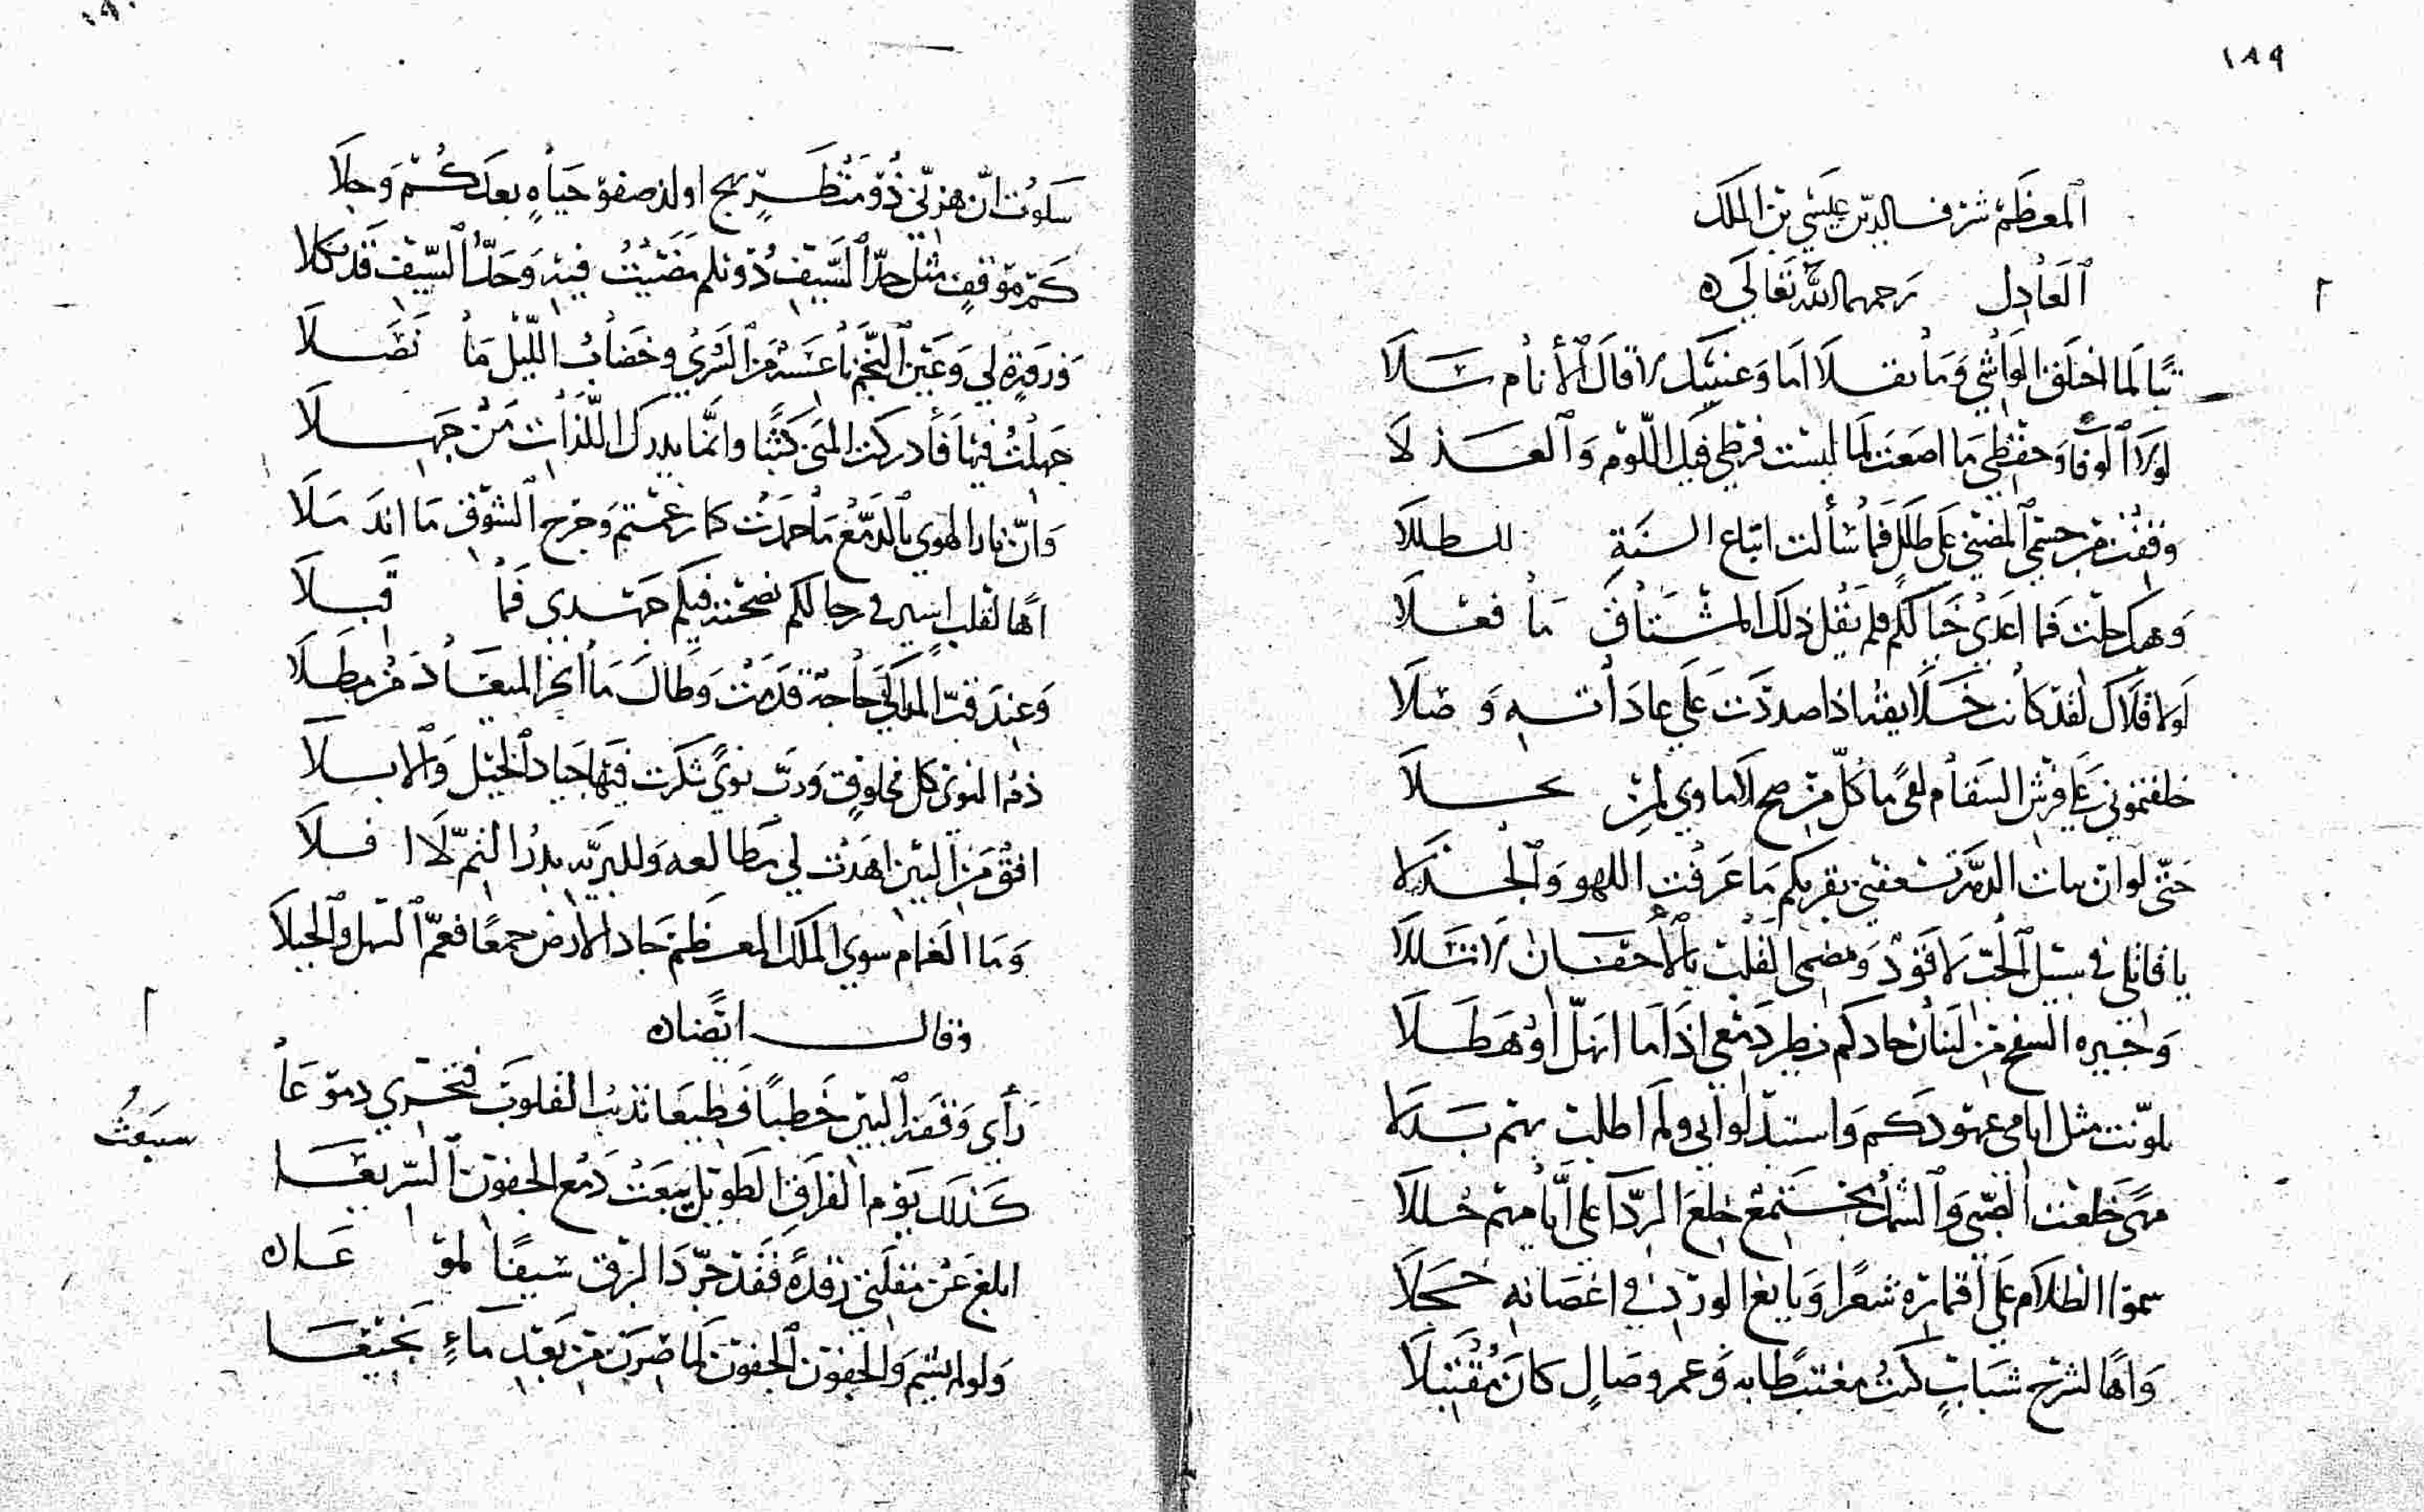 ١٨٩
المعظم شرف الدين عيسى بن الملك
العادل رحمهما الله تعالى
تبا لما اختلق الواشي وما نقلا اما وعينيك لا قال الأنام سلا
لولا الوفا وحفظي ما اضعت لما لبست فرطي فيك اللوم والعذلا
وقفت من جسمي المضني على طلل فما سألت اتباع السنة للطللا
وهبك حلت فما اعدي خيالكم فلم يقل ذلك المشتاق ما فعلا
لولا قلاك لقد كانت خلايقه اذا صددت على عاداته وصلا
خلفتموني على فرش السقام لقى ما كل من صح لاماوي لمن نحلا
حتى لو ان بنات الدهر تسعفني بقربكم ما عرفت اللهو والجذلا
يا قاتلي في سبيل الحب لا قود ومضحي القلب بالأجفان لا شللا
وا جيره السفح من لبنان جادكم نظير دمعي اذا ما انهل او هطلا
تلونت مثل ايامي عهودكم واستبدلوا بي ولم اطلب بهم بدلا
مهى خلعت الصبى والشمل مجتمع خلع الردا على أيامهم حللا
سموا الظلام على اقماره شعرا ويانع الورد في اغصانه خجلا
واها لشرخ شباب كنت مغتبطا به وعمر وصال كان مقتبلا
١٩٠
سلوت ان هزني ذو منظر بهج او لذ صفو حياه بعدكم وحلا
كم موقف مثل حد السيف ذو ثلم مضيت فيه وحد السيف قد نكلا
وزورة لي وعين النجم ناعسة من السرى وخضاب الليل ما نصلا
جهلت فيها فأدركت المنى كثبا وانما يدرك اللذات من جهلا
وان نار الهوى بالدمع ما خمدت كما زعمتم وجرح الشوق ما اندملا
اها لقلب اسير في رحالكم نضحته فيكم جهدي فما قبلا
وعند قب المهارى حاجة قدمت وطال ما انجز الميعاد من مطلا
ذم النوى كل مخلوق ورب نوى شكرت فيها جياد الخيل والابلا
افق من البين اهدت لي مطالعه وللبريه بدر التم لا افلا
وما الغمام سوى الملك المعظم جاد الارض جمعا فعم السهل والجبلا
وقال ايضا
رأى وقفة البين خطبا فظيعا تذيب القلوب فتجري دموعا
كذلك يوم الفراق الطويل يبعث دمع الجفون السريعا
سيبعث
ابلغ عن مقلتي رقدة فقد جرد البرق سيفا لموعا
ولو لم يشم والجفون الجفون لما ضرب من بعد ماء نجيعا